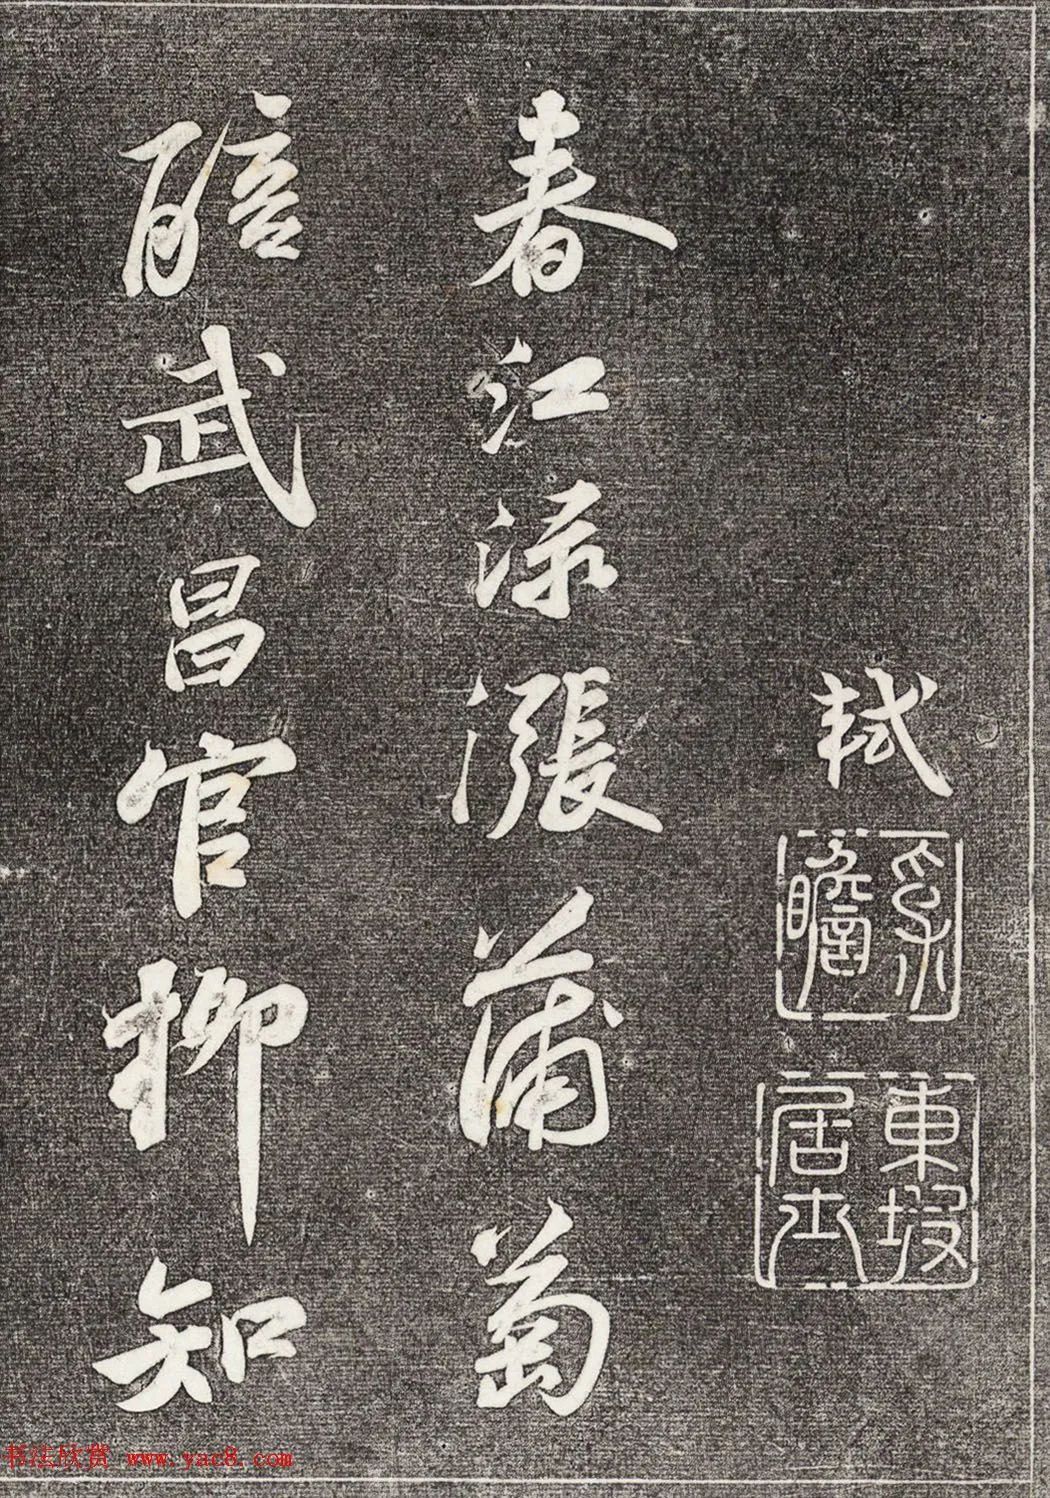 軾
子瞻
東坡居士
春江渌漲蒲萄
醅武昌官柳知
书法欣赏 www.yac8.com